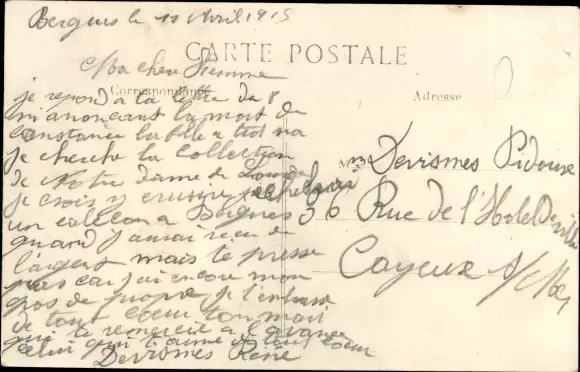 Bergues le 10 Avril 1915
CARTE POSTALE
Ma chere Femme
Correspondance
Adresse
je repond a ta lettre du 8
m'anoncant la mort de
Constance la fille a
je cherche la Collection
de Notre Dame de
je crois y
un calecon a Bergues
quand j'aurai recu de
l'argent mais te presse
pas car j'ai encore mon
gros de propre je t'embrasse
de tout coeur ton mari
qui te remercie a l'avance
celui qui t'aime de tout coeur
Devismes René
Devismes
36 Rue de l'Hotel de ville
Cayeux s/Mer